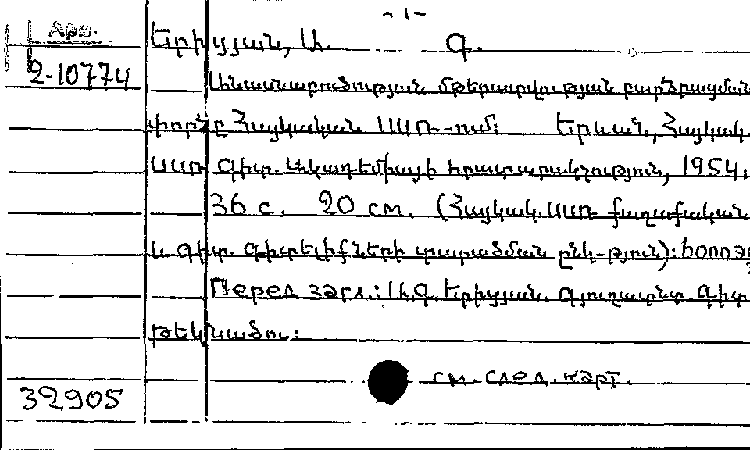 - 1 -
Арм.
Երիցյան, Ա. Գ.
2-10774
Անասնաբուծության մթերատվության բարձրացման
փորձը Հայկական ՍՍՌ-ում: Երևան, Հայկակ
ՍՍՌ Գիտ. Ակադեմիայի հրատարակչություն, 1954.
36 с. 20 см. (Հայկակ. ՍՍՌ քաղաքական
և գիտ. գիտելիքների տարածման ընկ-թյուն):
Перед загл.: Ա. Գ. Երիցյան. Գյուղատնտ. գիտ
թեկնածու:
см. след. карт.
32905